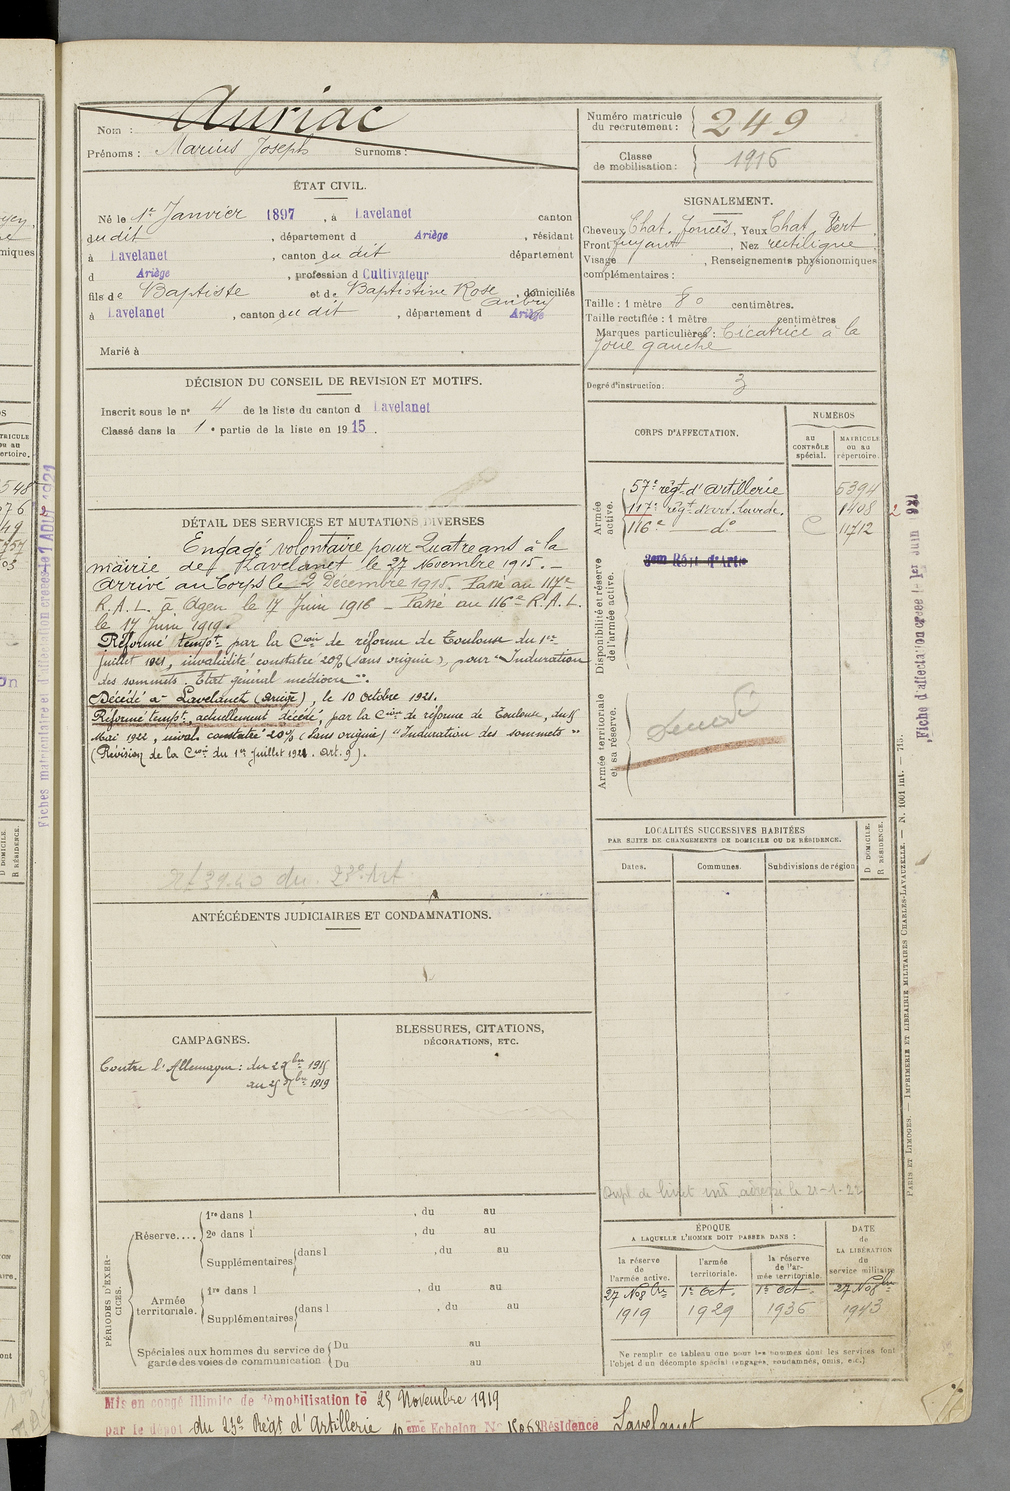 Nom : Auriac
Prénoms : Marius Joseph Surnoms :
Numéro matricule du recrutement : 249
Classe de mobilisation : 1916
ÉTAT CIVIL.
Né le 1er Janvier 1897, à Lavelanet canton
dudit, département d Ariège, résidant
à Lavelanet, canton du dit département
d Ariège, profession d Cultivateur
fils de Baptiste et de Baptistine Rose Aubry, domiciliés
à Lavelanet, canton du dit, département d Ariège
Marié à
SIGNALEMENT.
Cheveux Chat. foncés, Yeux Chat. Vert
Front fuyant, Nez rectiligne
Visage , Renseignements physionomiques
complémentaires :
Taille : 1 mètre 80 centimètres.
Taille rectifiée : 1 mètre centimètres
Marques particulières : Cicatrice à la
joue gauche
Degré d'instruction : 3
DÉCISION DU CONSEIL DE REVISION ET MOTIFS.
Inscrit sous le n° 4 de la liste du canton d Lavelanet
Classé dans la 1e partie de la liste en 1915.
CORPS D'AFFECTATION.
NUMÉROS
au CONTRÔLE spécial.
MATRICULE ou au répertoire.
Armée active.
57e régt d'artillerie 5394
117e régt d'art. lourde. 1408
116e d° C 11712
Disponibilité et réserve de l'armée active.
Armée territoriale et sa réserve.
Décédé
DÉTAIL DES SERVICES ET MUTATIONS DIVERSES
Engagé volontaire pour Quatre ans à la
mairie de Lavelanet le 27 Novembre 1915. –
Arrivé au Corps le 2 Décembre 1915. Passé au 117e
R.A.L. à Agen le 17 Juin 1916 – Passé au 116e R.A.L.
le 17 Juin 1919.
Réformé tempt par la Con de réforme de Toulouse du 1er
juillet 1921, invalidité constatée 20% (sans origine), pour "Induration
des sommets. Etat général médiocre".
Décédé à Lavelanet (Ariège), le 10 Octobre 1921.
Réformé tempt, actuellement décédé, par la Con de réforme de Toulouse, du
Mai 1922, inval. constatée 20% (sans origine) "Induration des sommets"
(Révision de la Con du 1er juillet 1921. Art. 9).
ANTÉCÉDENTS JUDICIAIRES ET CONDAMNATIONS.
LOCALITÉS SUCCESSIVES HABITÉES
PAR SUITE DE CHANGEMENTS DE DOMICILE OU DE RÉSIDENCE.
Dates. Communes. Subdivisions de région
D. DOMICILE.
R. RÉSIDENCE.
CAMPAGNES.
Contre l'Allemagne : du 27 1915
au 25 9bre 1919
BLESSURES, CITATIONS,
DÉCORATIONS, ETC.
Dupl. de livret adressé le 21-1-22
PÉRIODES D'EXERCICES.
Réserve....
1re dans l , du au
2e dans l , du au
Supplémentaires dans l , du au
Armée territoriale.
1re dans l , du au
Supplémentaires dans l , du au
Spéciales aux hommes du service de garde des voies de communication
Du au
Du au
ÉPOQUE
A LAQUELLE L'HOMME DOIT PASSER DANS :
la réserve de l'armée active.
l'armée territoriale.
la réserve de l'armée territoriale.
DATE de LA LIBÉRATION du service militaire
27 Nov bre 1919
1er Oct. 1929
1er Oct. 1936
27 Nov bre 1943
Ne remplir ce tableau que pour les hommes dont les services font
l'objet d'un décompte spécial (engagés, condamnés, omis, etc.)
Mis en congé Illimité de démobilisation le 25 Novembre 1919
par le dépôt du 23e Régt d'Artillerie 10 ème Echelon N° Résidence Lavelanet
PARIS ET LIMOGES. — IMPRIMERIE ET LIBRAIRIE MILITAIRES CHARLES-LAVAUZELLE. — N. 1001 int. — 715.
Fiche d'affectation créée le 1er Juin 1921